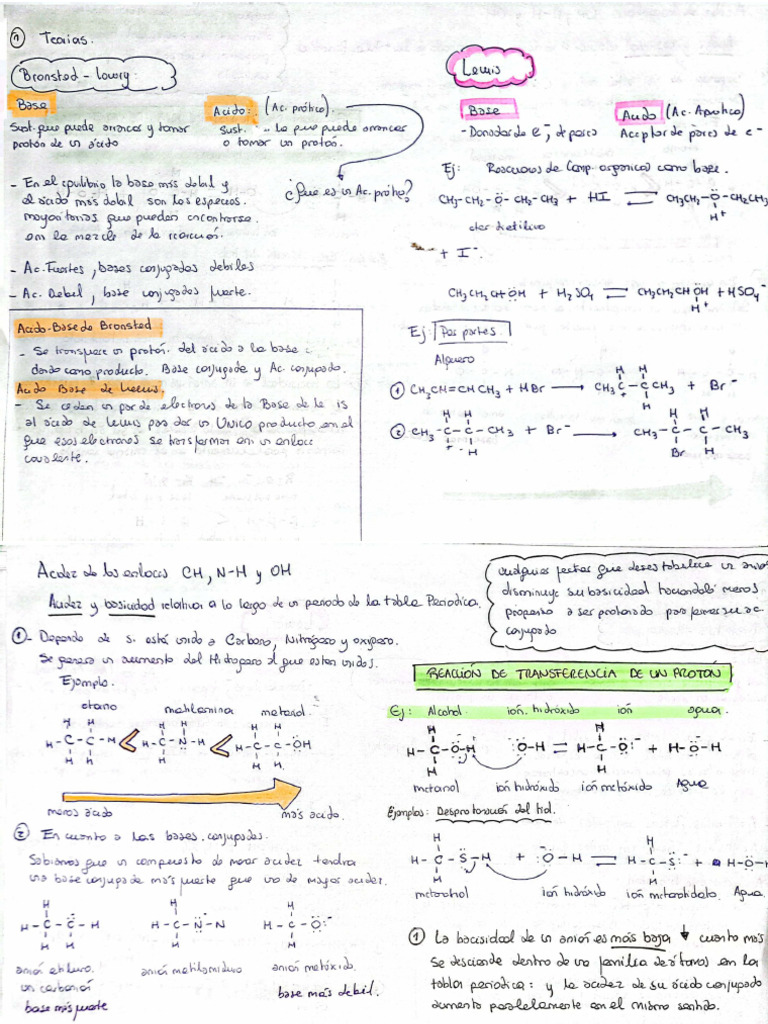 ① Teorias.
Bronsted - Lowry.
Base
Sust. que puede arrancar y tomar
protón de un ácido
Acido: (Ac. prótico).
sust. .. la que puede arrancar
o tomar un protón.
- En el equilibrio la base más débil y
el ácido más débil son las especies
mayoritarias que pueden encontrarse
en la mezcla de la reacción.
¿Que es un Ac. prótico?
- Ac. Fuertes, bases conjugadas debiles
- Ac. Debil, base conjugadas fuerte.
Acido-Base de Bronsted
- Se transfiere un protón del ácido a la base :
dando como producto. Base conjugada y Ac conjugado.
Acido Base de Lewis.
- Se ceden un par de electrones de la Base de
al ácido de Lewis para dar un UNICO producto en el
que esos electrones se transforman en un enlace
covalente.
Lewis
Base
- Donador de e-, de pares
Acido (Ac. Aprotico)
Aceptar de pares de e-
Ej: Reacciones de Comp. organicos como base.
CH3-CH2-Ö-CH2-CH3 + HI ⇌ CH3CH2-Ö-CH2CH3
H+
eter dietilico
+ I-.
CH3CH2CH2ÖH + H2SO4 ⇌ CH3CH2CH2ÖH + HSO4-
H+
Ej: Por partes
Alqueno
① CH3CH=CHCH3 + HBr → CH3C-CCH3 + Br-
H H
+ H
② CH3-C-C-CH3 + Br- → CH3-C-C-CH3
H H H H
+ H Br H
Acidez de los enlaces CH, N-H y OH
Acidez y basicidad relativa a lo largo de un periodo de la tabla Periodica.
①- Depende de si está unido a Carbono, Nitrógeno y oxígeno.
Se genera un aumento del Hidrogeno al que estan unidos.
Ejemplo.
etano metilamina metanol
H H H H H
H-C-C-H < H-C-N-H < H-C-C-ÖH
H H H H H
menos ácido más acido.
② En cuanto a las bases conjugadas.
Sabiamos que un compuesto de menor acidez tendra
una base conjugada más fuerte que uno de mayor acidez.
H H H H
H-C-C-H H-C-N-N H-C-Ö:-
H H H H
anión etiluro. anión metilamiduro anión metóxido.
un carbanión
base más fuerte base más debil.
cualquier factor que desestabilice un anión
disminuye su basicidad haciendolo menos
propenso a ser protonado para formar su ac.
conjugado
REACCIÓN DE TRANSFERENCIA DE UN PROTÓN
Ej: Alcohol ión. hidróxido ión agua.
H H
H-C-Ö-H :Ö-H ⇌ H-C-Ö:- + H-Ö-H
H H
metanol ión hidróxido ión metóxido Agua
Ejemplos: Desprotonación del tiol.
H H
H-C-S-H + -:Ö-H ⇌ H-C-S:- + H-Ö-H
H H
ión hidróxido Agua.
① La bacisidad de un anión es más baja ↓ cuanto más
se desciende dentro de una familia de átomos en la
tabla periodica: y la acidez de su ácido conjugado
aumenta paralelamente en el mismo sentido.